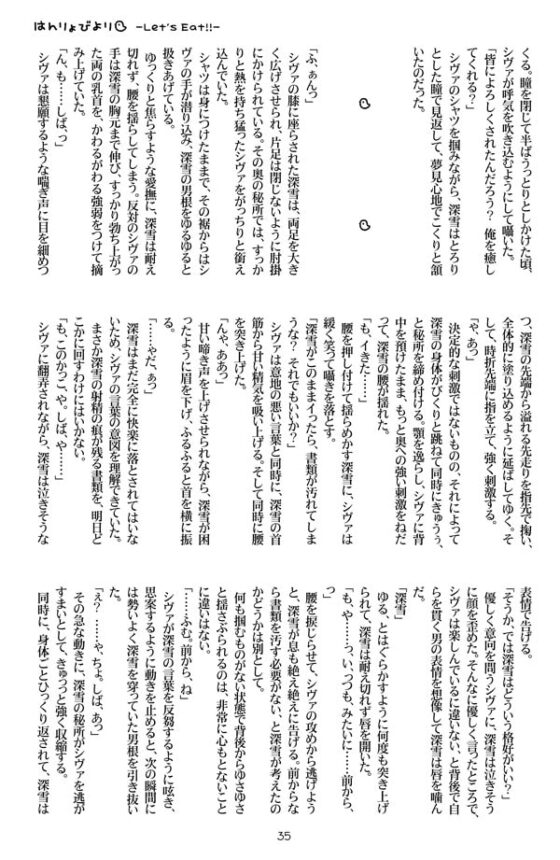 はんりょびより -Let's Eat!!-
くる。瞳を閉じて半ばうっとりとしかけた頃、
シヴァが呼気を吹き込むようにして囁いた。
「皆によろしくされたんだろう？ 俺を癒し
てくれる？」
シヴァのシャツを掴みながら、深雪はとろり
とした瞳で見返して、夢見心地でこくりと頷
いたのだった。
「ふ、ぁんっ」
シヴァの膝に座らされた深雪は、両足を大き
く広げさせられ、片足は閉じないように肘掛
にかけられている。その奥の秘所では、すっか
りと熱を持ち猛ったシヴァをがっちりと銜え
込んでいた。
シャツは身につけたままで、その裾からはシ
ヴァの手が潜り込み、深雪の男根をゆるゆると
扱きあげている。
ゆっくりと焦らすような愛撫に、深雪は耐え
切れず、腰を揺らしてしまう。反対のシヴァの
手は深雪の胸元まで伸び、すっかり勃ち上がっ
た両の乳首を、かわるがわる強弱をつけて摘
み上げていた。
「ん、も……しば、っ」
シヴァは懇願するような喘ぎ声に目を細めつ
つ、深雪の先端から溢れる先走りを指先で掬い、
全体的に塗り込めるように延ばしてゆく。そ
して、時折先端に指を立て、強く刺激する。
「ゃ、あっ」
決定的な刺激ではないものの、それによって
深雪の身体がびくりと跳ねて同時にきゅうぅ、
と秘所を締め付ける。顎を逸らし、シヴァに背
中を預けたまま、もっと奥への強い刺激をねだ
って、深雪の腰が揺れた。
「も、イきた……っ」
腰を押し付けて揺らめかす深雪に、シヴァは
緩く笑って囁きを落とす。
「深雪がこのままイったら、書類が汚れてしま
うな？ それでもいいか？」
シヴァは意地の悪い言葉と同時に、深雪の首
筋から甘い精気を吸い上げる。そして同時に腰
を突き上げた。
「んゃ、ああっ」
甘い啼き声を上げさせられながら、深雪が困
ったように眉を下げ、ふるふると首を横に振
る。
「……ゃだ、ぁっ」
深雪はまだ完全に快楽に落とされてはいな
いため、シヴァの言葉の意図を理解できていた。
まさか深雪の射精の痕が残る書類を、明日ど
こかに回すわけにはいかない。
「も、このかっこ、や。しば、や……」
シヴァに翻弄されながら、深雪は泣きそうな
表情で告げる。
「そうか、では深雪はどういう格好がいい？」
優しく意向を問うシヴァに、深雪は泣きそう
に顔を歪めた。そんなに優しく言ったところで、
シヴァは楽しんでいるに違いない、と背後で自
らを貫く男の表情を想像して深雪は唇を噛ん
だ。
「深雪」
ゆる、とはぐらかすように何度も突き上げ
られて、深雪は耐え切れず唇を開いた。
「も、や……っ、い、つつも、みたいに……前から、
っ」
腰を捩じらせて、シヴァの攻めから逃げよう
と、深雪が息も絶え絶えに告げる。前からな
ら書類を汚す必要がない、と深雪が考えたの
かどうかは別として。
何も掴むものがない状態で背後からゆさゆさ
と揺さぶられるのは、非常に心もとないこと
に違いはない。
「……ふむ。前から、ね」
シヴァが深雪の言葉を反芻するように呟き、
思案するように動きを止めると、次の瞬間に
は勢いよく深雪を穿っていた男根を引き抜い
た。
「え？ ……ゃ、ちょ。しば、あっ」
その急な動きに、深雪の秘所がシヴァを逃が
すまいとして、きゅうっと強く収縮する。
同時に、身体ごとひっくり返されて、深雪は
35